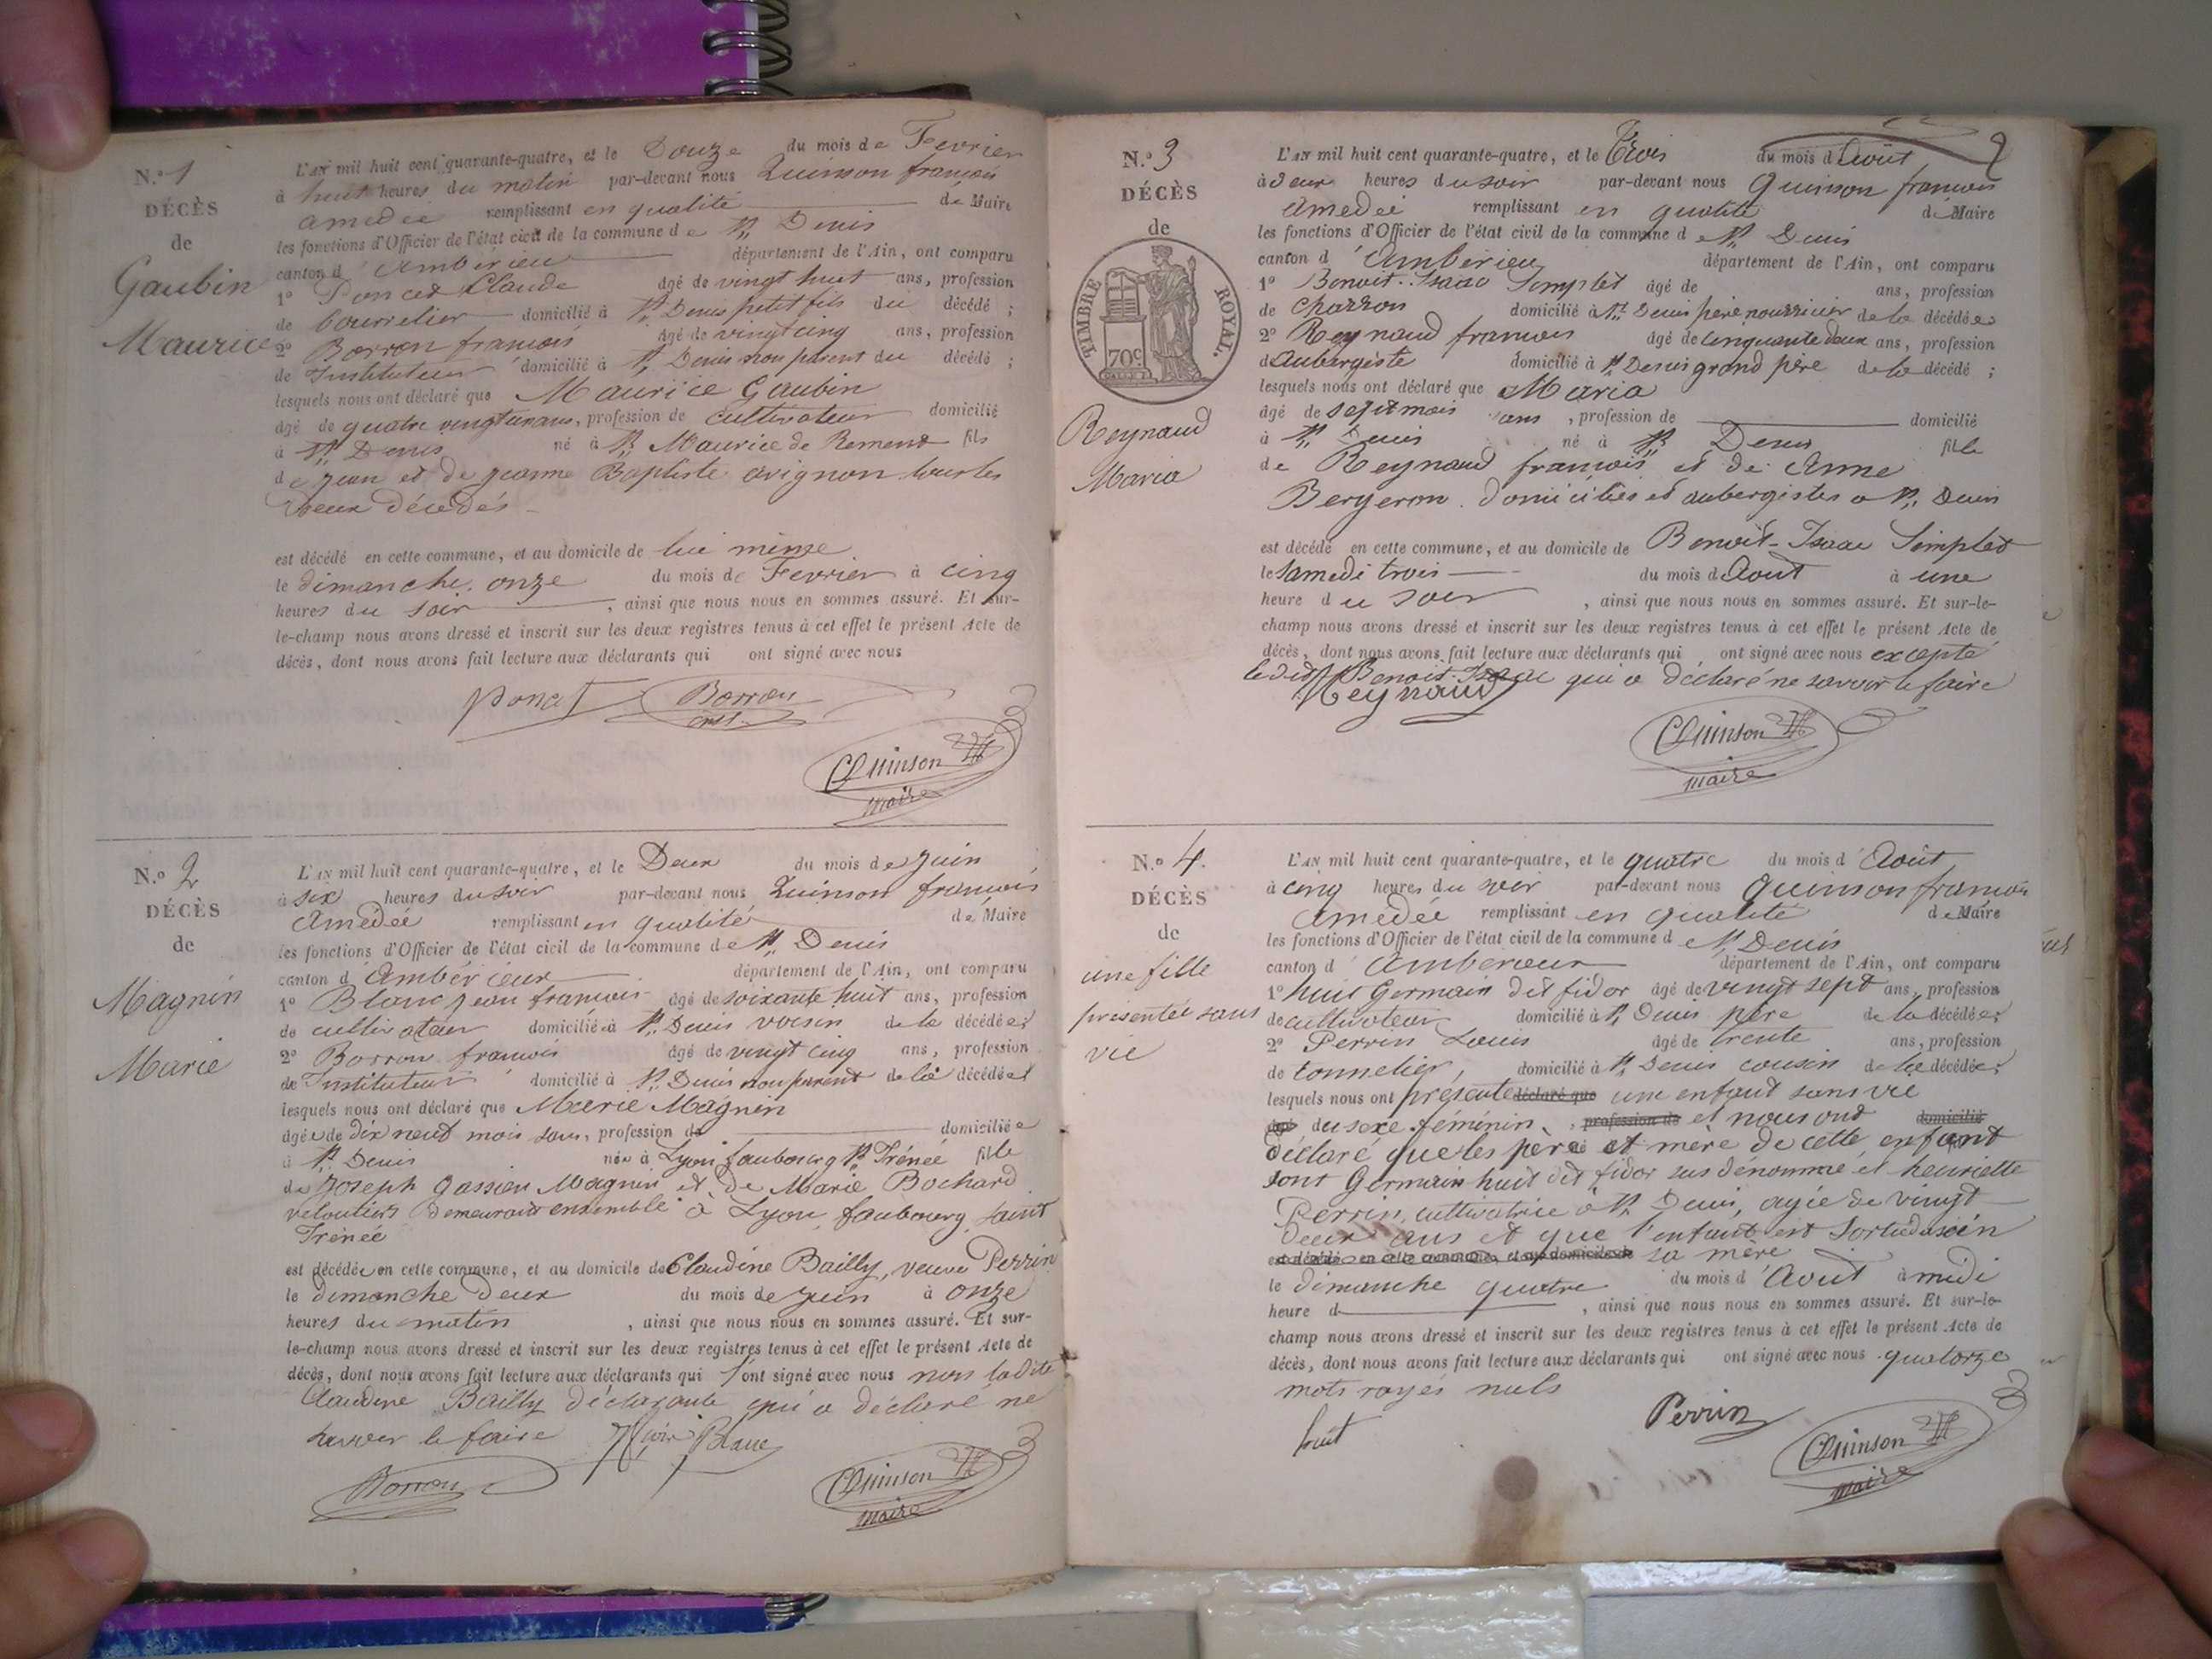 N.º 1
DÉCÈS
de
Gaubin
Maurice
L'AN mil huit cent quarante-quatre, et le Douze du mois de Fevrier
à huit heures du matin par-devant nous Quinson françois
amédée remplissant en qualité de Maire
les fonctions d'Officier de l'état civil de la commune de St Denis
canton d'Ambérieu département de l'Ain, ont comparu
1º Poncet Claude âgé de vingt huit ans, profession
de bourrelier domicilié à St Denis petit fils du décédé ;
2º Borron françois âgé de vingt cinq ans, profession
de Instituteur domicilié à St Denis non parent du décédé ;
lesquels nous ont déclaré que Maurice Gaubin
âgé de quatre vingt un ans, profession de cultivateur domicilié
à St Denis né à St Maurice de Remens fils
de jean et de jeanne Baptiste avignon tous les
deux décédés
est décédé en cette commune, et au domicile de lui même
le dimanche onze du mois de Fevrier à cinq
heures du soir , ainsi que nous nous en sommes assuré. Et sur-
le-champ nous avons dressé et inscrit sur les deux registres tenus à cet effet le présent Acte de
décès, dont nous avons fait lecture aux déclarants qui ont signé avec nous
Poncet Borron
Quinson
maire
N.º 2
DÉCÈS
de
Magnin
Marie
L'AN mil huit cent quarante-quatre, et le Deux du mois de juin
à six heures du soir par-devant nous Quinson françois
Amédée remplissant en qualité de Maire
les fonctions d'Officier de l'état civil de la commune de St Denis
canton d'Ambérieux département de l'Ain, ont comparu
1º Blanc jean françois âgé de soixante huit ans, profession
de cultivateur domicilié à St Denis voisin de la décédée ;
2º Borron françois âgé de vingt cinq ans, profession
de Instituteur domicilié à St Denis non parent de la décédée ;
lesquels nous ont déclaré que Marie Magnin
âgée de dix neuf mois ans, profession de domiciliée
à St Denis née à Lyon faubourg St Irénée fille
de Joseph Magnin et de Marie Bochard
veloutiers demeurant ensemble à Lyon faubourg saint
Irénée
est décédée en cette commune, et au domicile de Claudine Bailly, veuve Perrin
le dimanche deux du mois de juin à onze
heures du matin , ainsi que nous nous en sommes assuré. Et sur-
le-champ nous avons dressé et inscrit sur les deux registres tenus à cet effet le présent Acte de
décès, dont nous avons fait lecture aux déclarants qui ont signé avec nous non ladite
Claudine Bailly déclarante qui a déclaré ne
savoir le faire Blanc
Borron
Quinson
maire
N.º 3
DÉCÈS
de
TIMBRE ROYAL.
70c
Reynaud
Maria
L'AN mil huit cent quarante-quatre, et le Trois du mois d'Août
à deux heures du soir par-devant nous Quinson françois
Amédée remplissant en qualité de Maire
les fonctions d'Officier de l'état civil de la commune de St Denis
canton d'Ambérieu département de l'Ain, ont comparu
1º Benoit Isaac Simplet âgé de ans, profession
de charron domicilié à St Denis père nourricier de la décédée
2º Reynaud françois âgé de cinquante deux ans, profession
d'Aubergiste domicilié à St Denis grand père de la décédé ;
lesquels nous ont déclaré que Maria
âgé de sept mois ans, profession de domicilié
à St Denis né à St Denis fille
de Reynaud françois et de Anne
Bergeron domiciliés et aubergistes à St Denis
est décédé en cette commune, et au domicile de Benoit Isaac Simplet
le samedi trois du mois d'Août à une
heure du soir , ainsi que nous nous en sommes assuré. Et sur-le-
champ nous avons dressé et inscrit sur les deux registres tenus à cet effet le présent Acte de
décès, dont nous avons fait lecture aux déclarants qui ont signé avec nous excepté
ledit Benoit Isaac qui a déclaré ne savoir le faire
Reynaud
Quinson
maire
N.º 4.
DÉCÈS
de
une fille
présentée sans
vie
L'AN mil huit cent quarante-quatre, et le quatre du mois d'Août
à cinq heures du soir par-devant nous Quinson françois
Amédée remplissant en qualité de Maire
les fonctions d'Officier de l'état civil de la commune de St Denis
canton d'Ambérieux département de l'Ain, ont comparu
1º huit Germain dit fidor âgé de vingt sept ans, profession
de cultivateur domicilié à St Denis père de la décédée ;
2º Perrin Louis âgé de trente ans, profession
de tonnelier, domicilié à St Denis cousin de la décédée ;
lesquels nous ont présenté déclaré que une enfant sans vie
âgé du sexe féminin, profession de et nous ont domicilié
déclaré que les père et mère de cette enfant
sont Germain huit dit fidor sus dénommé et henriette
Perrin, cultivatrice à St Denis, agée de vingt
deux ans et que l'enfant est sortie du sein
est décédé en cette commune, et au domicile de sa mère
le dimanche quatre du mois d'Août à midi
heure d , ainsi que nous nous en sommes assuré. Et sur-le-
champ nous avons dressé et inscrit sur les deux registres tenus à cet effet le présent Acte de
décès, dont nous avons fait lecture aux déclarants qui ont signé avec nous quatorze
mots rayés nuls
huit Perrin
Quinson
maire